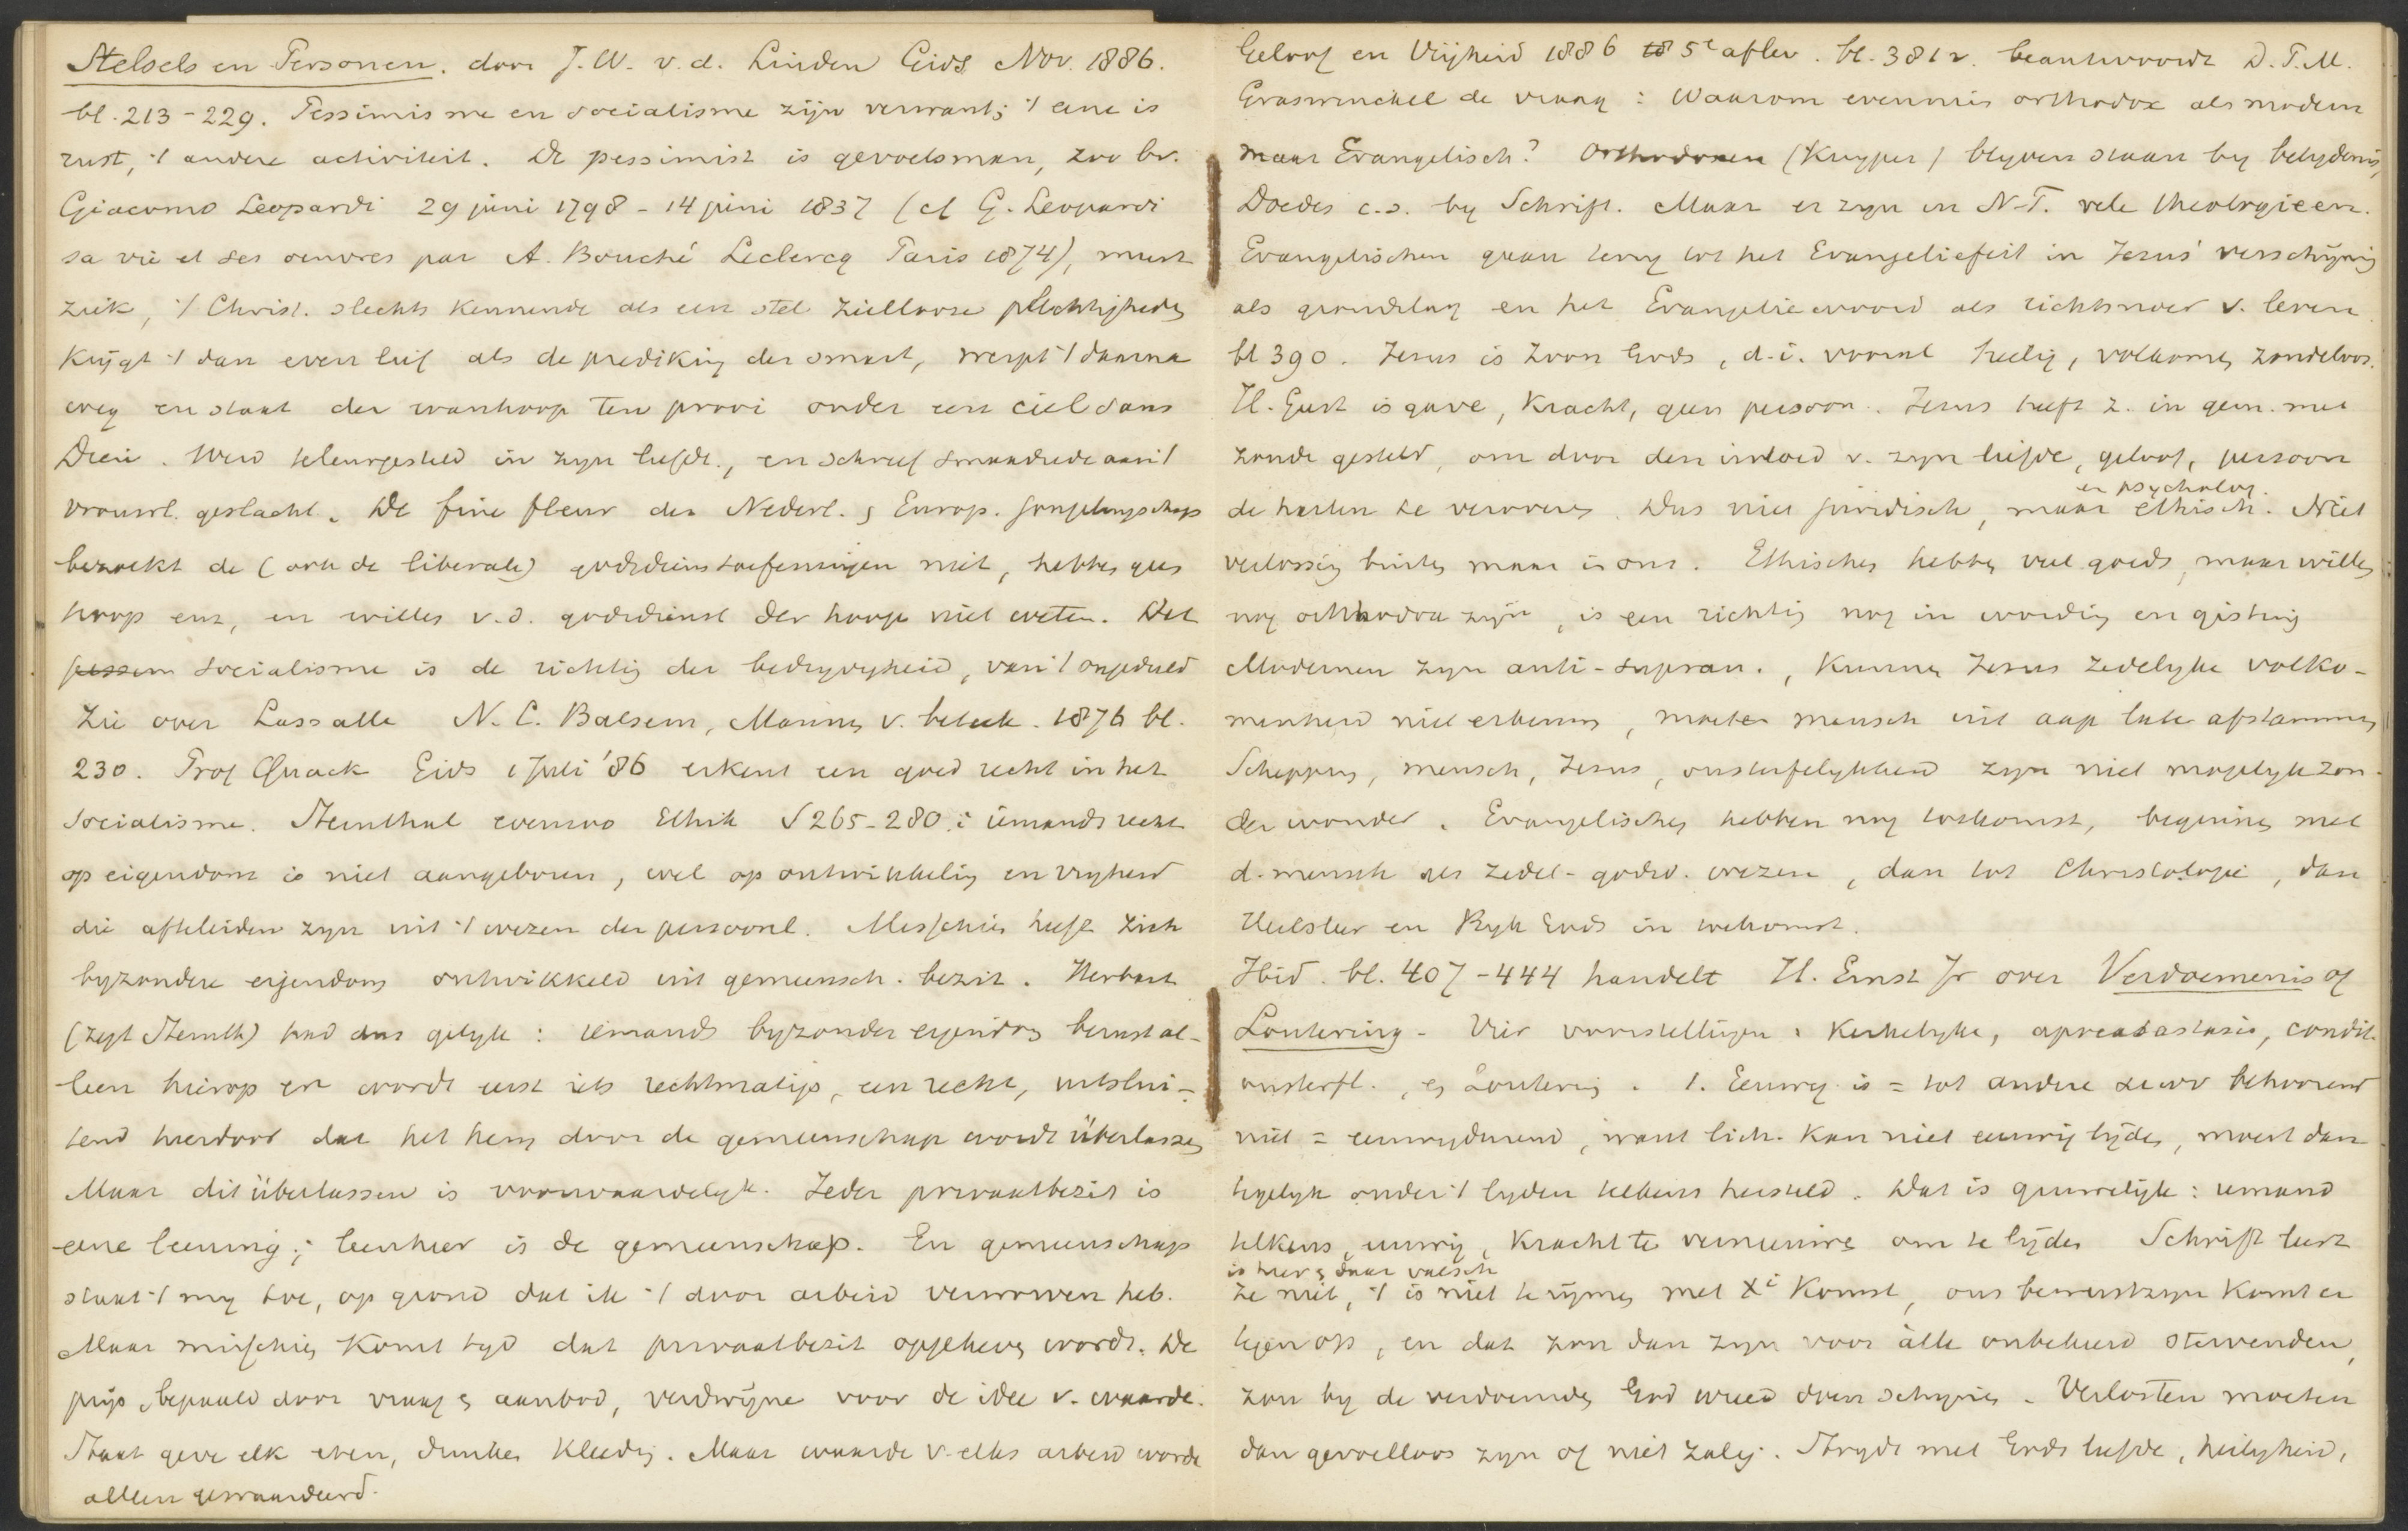 Stelsels en Personen. door J. W. v. d. Linden Gids Nov. 1886.
bl. 213-229. Pessimisme en socialisme zijn verwant; 't eene is
rust, 't andere activiteit. De pessimist is gevoelsman, zoo bv.
Giacomo Leopardi 29 juni 1798 - 14 juni 1837 (cf G. Leopardi
sa vie et ses oeuvres par A. Bouché Leclercq Paris 1874), murt
ziek, 't Christ. slechts kennende als een stel ziellooze plechtigheden
krijgt 't dan even lief als de prediking der smart, werpt 't daarna
weg en staat der wanhoop ten prooi onder een ciel sans
Dieu. Werd teleurgesteld in zijn liefde, en schreef smaadrede aan 't
vrouwl. geslacht. De fine fleur der Nederl. & Europ. jongelingschap
bezoekt de (ook de liberale) godsdienstoefeningen niet, hebben geen
hoop enz, en willen v. d. godsdienst der hoop niet weten. Het
pessim socialisme is de richting der bedrijvigheid, van 't ongeduld
Zie over Lassalle N. C. Balsem, Mannen v. beteek. 1876 bl.
230. Prof Quack Gids 1 Juli '86 erkent een goed recht in het
socialisme. Steinthal evenzoo Ethik § 265-280: iemands recht
op eigendom is niet aangeboren, wel op ontwikkeling en vryheid
die afteleiden zyn uit 't wezen der persoonl. Misschien heeft zich
byzondere eigendom ontwikkeld uit gemeensch. bezit. Herbart
(zegt Steinth) had dus gelyk: iemands byzonder eigendom berust al-
leen hierop en wordt eerst iets rechtmatigs, een recht, uitslui-
tend hierdoor dat het hem door de gemeenschap wordt überlassen
Maar dit überlassen is voorwaardelyk. Ieder privaatbezit is
eene leening; leenheer is de gemeenschap. En gemeenschap
staat 't my toe, op grond dat ik 't door arbeid verworven heb.
Maar misschien komt tyd dat privaatbezit opgeheven wordt. De
prijs bepaald door vraag & aanbod, verdwijne voor de idee v. waarde.
Staat geve elk eten, drinken kleeding. Maar waarde v. elks arbeid worde
alleen gewaardeerd.
Geloof en Vrijheid 1886 5e aflev. bl. 381v. beantwoordt D. P. M.
Graswinckel de vraag: Waarom evenmin orthodox als modern
maar Evangelisch? Orthodoxen (Kuyper) blyven staan by belydenis,
Doedes c.s. by Schrift. Maar er zyn in N.T. vele theologieen.
Evangelischen gaan terug tot het Evangeliefeit in Jezus' verschijning
als grondslag en het Evangeliewoord als richtsnoer v. leven.
bl 390. Jezus is Zoon Gods, d.i. vooral heilig, volkomen zondeloos.
H. Geest is gave, kracht, geen persoon. Jezus heeft z. in gem. met
zonde gesteld, om door den invloed v. zyn liefde, geloof, persoon
de harten te veroveren. Dus niet juridisch, maar ethisch en psycholog. Niet
verlossing buiten maar in ons. Ethischen hebben veel goeds, maar willen
nog orthodox zijn, is een richting nog in wording en gisting
Modernen zyn anti-supran., kunnen Jezus zedelyke volko-
menheid niet erkennen, moeten mensch uit aap laten afstammen
Schepping, mensch, Jezus, onsterfelykheid zyn niet mogelyk zon-
der wonder. Evangelischen hebben nog toekomst, beginnen met
d. mensch als zedel-godsd. wezen, dan tot Christologie, dan
Heilsleer en Ryk Gods in toekomst.
Ibid. bl. 407-444 handelt H. Ernst Jr over Verdoemenis of
Loutering. Vier voorstellingen: Kerkelyke, apocatastasis, condit.
onsterfl., & Loutering. 1. Eeuwig is = tot andere eeuw behoorend
niet = eeuwigdurend, want lich. kan niet eeuwig lijden, moest dan
tegelyk onder 't lyden telkens hersteld. Dat is gruwelijk: iemand
telkens, eeuwig, kracht te vernieuwen om te lijden Schrift leert
is hier & daar valsch
ze niet, 't is niet te rijmen met Xi komst, ons bewustzyn komt er
tegen op, en dat zou dan zyn voor alle onbekeerd stervenden,
zou by de verdoemden God wreed doen schynen. Verlosten moeten
dan gevoelloos zyn of niet zalig. Strydt met Gods liefde, heiligheid,